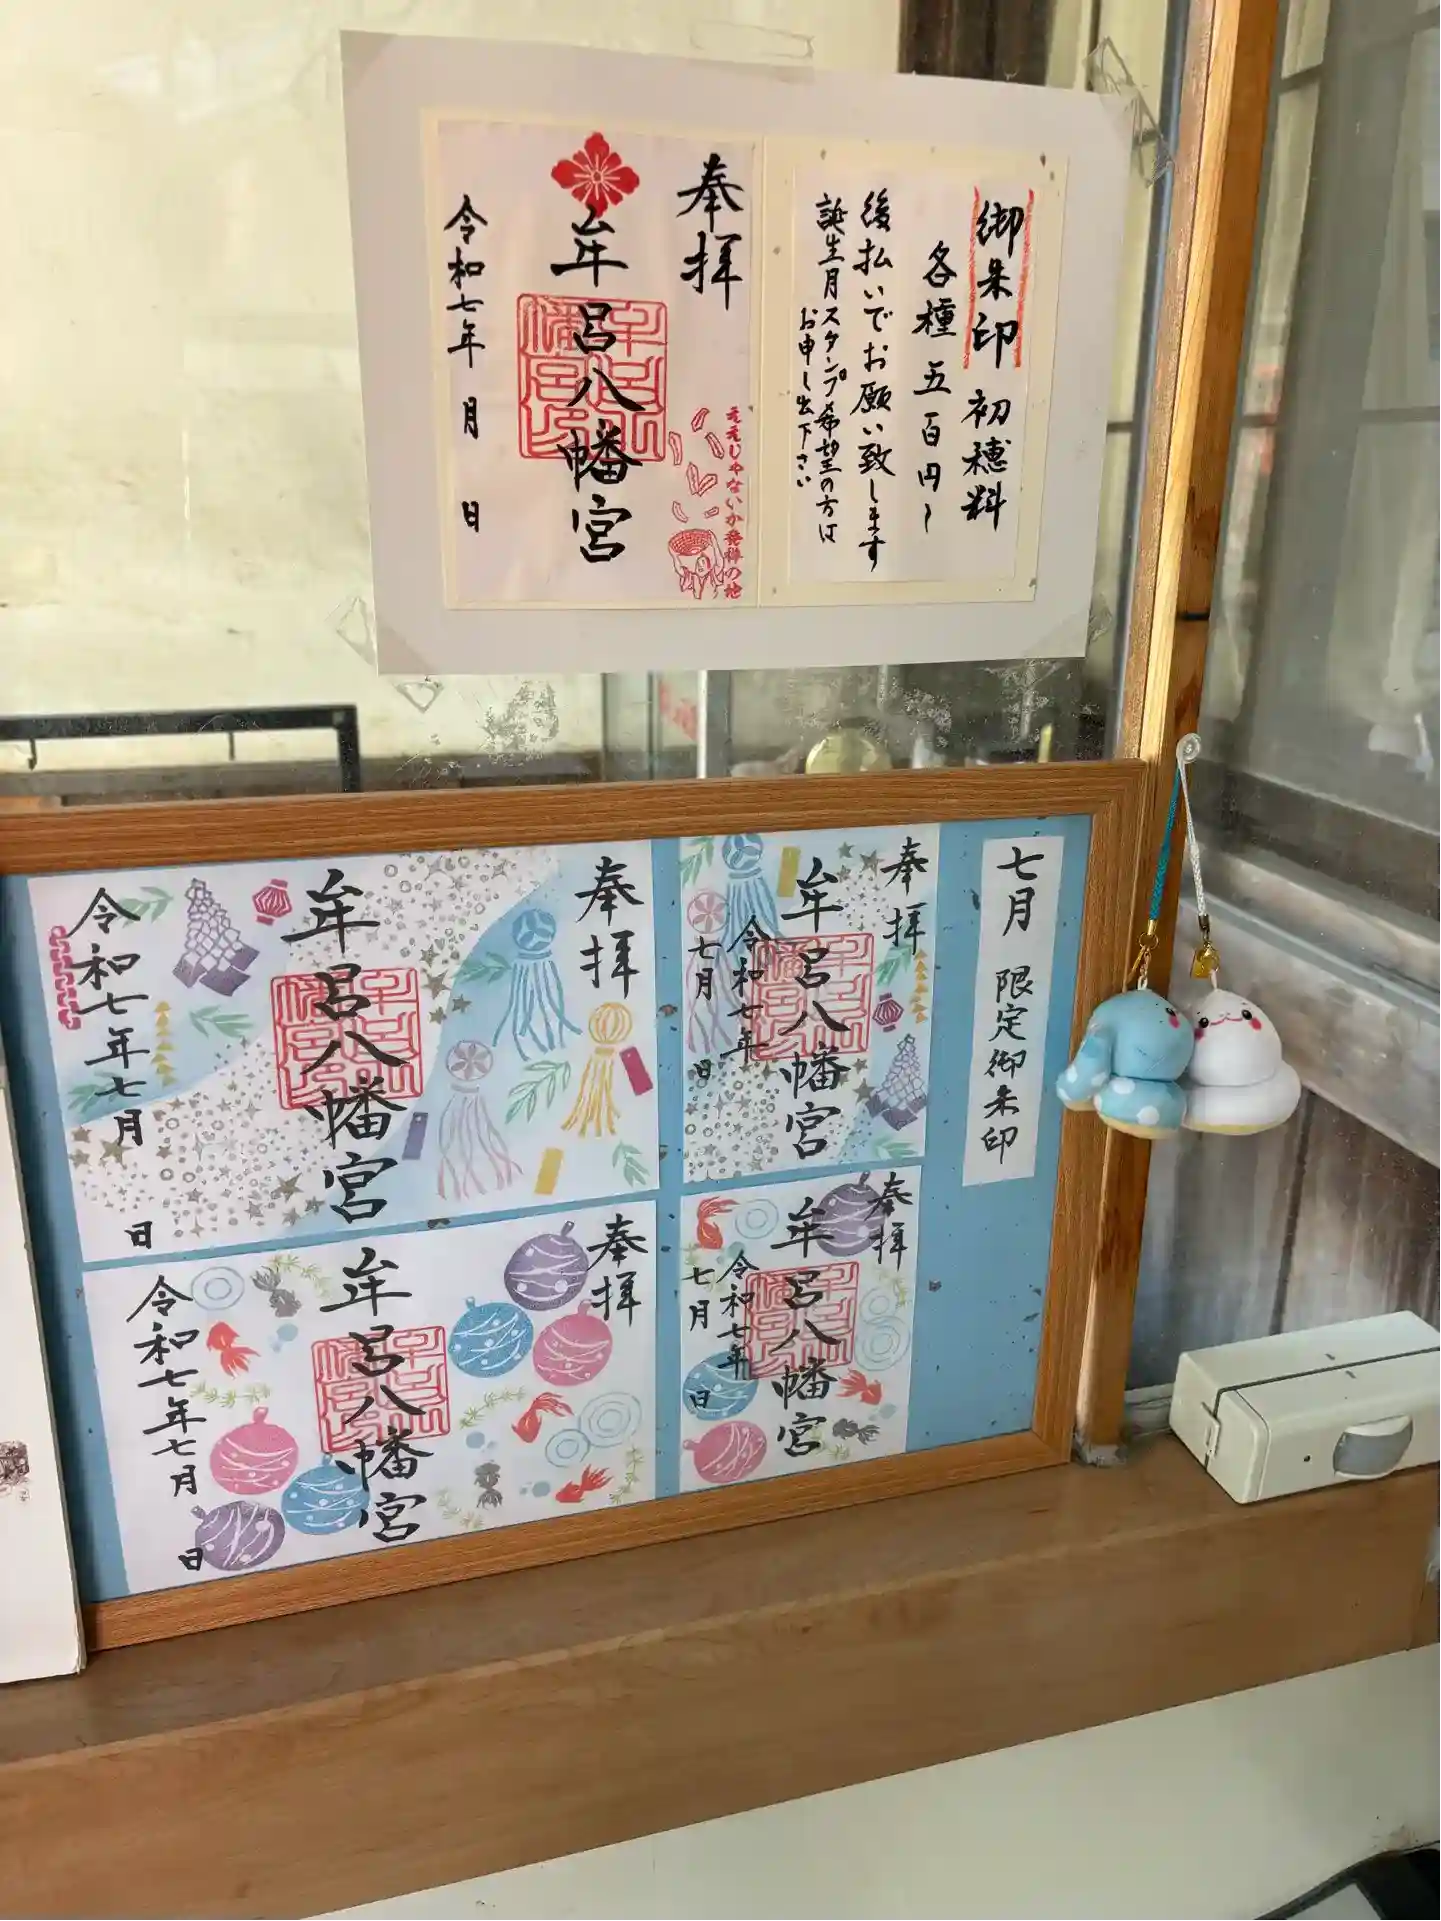 御朱印 初穂料
各種 五百円〜
後払いでお願い致します
誕生月スタンプ希望の方は
お申し出下さい
奉拝
牟呂八幡宮
令和七年 月 日
ええじゃないか発祥の地
七月 限定御朱印
奉拝
牟呂八幡宮
令和七年
七月 日
奉拝
牟呂八幡宮
令和七年七月
日
奉拝
牟呂八幡宮
令和七年
七月 日
奉拝
牟呂八幡宮
令和七年七月
日